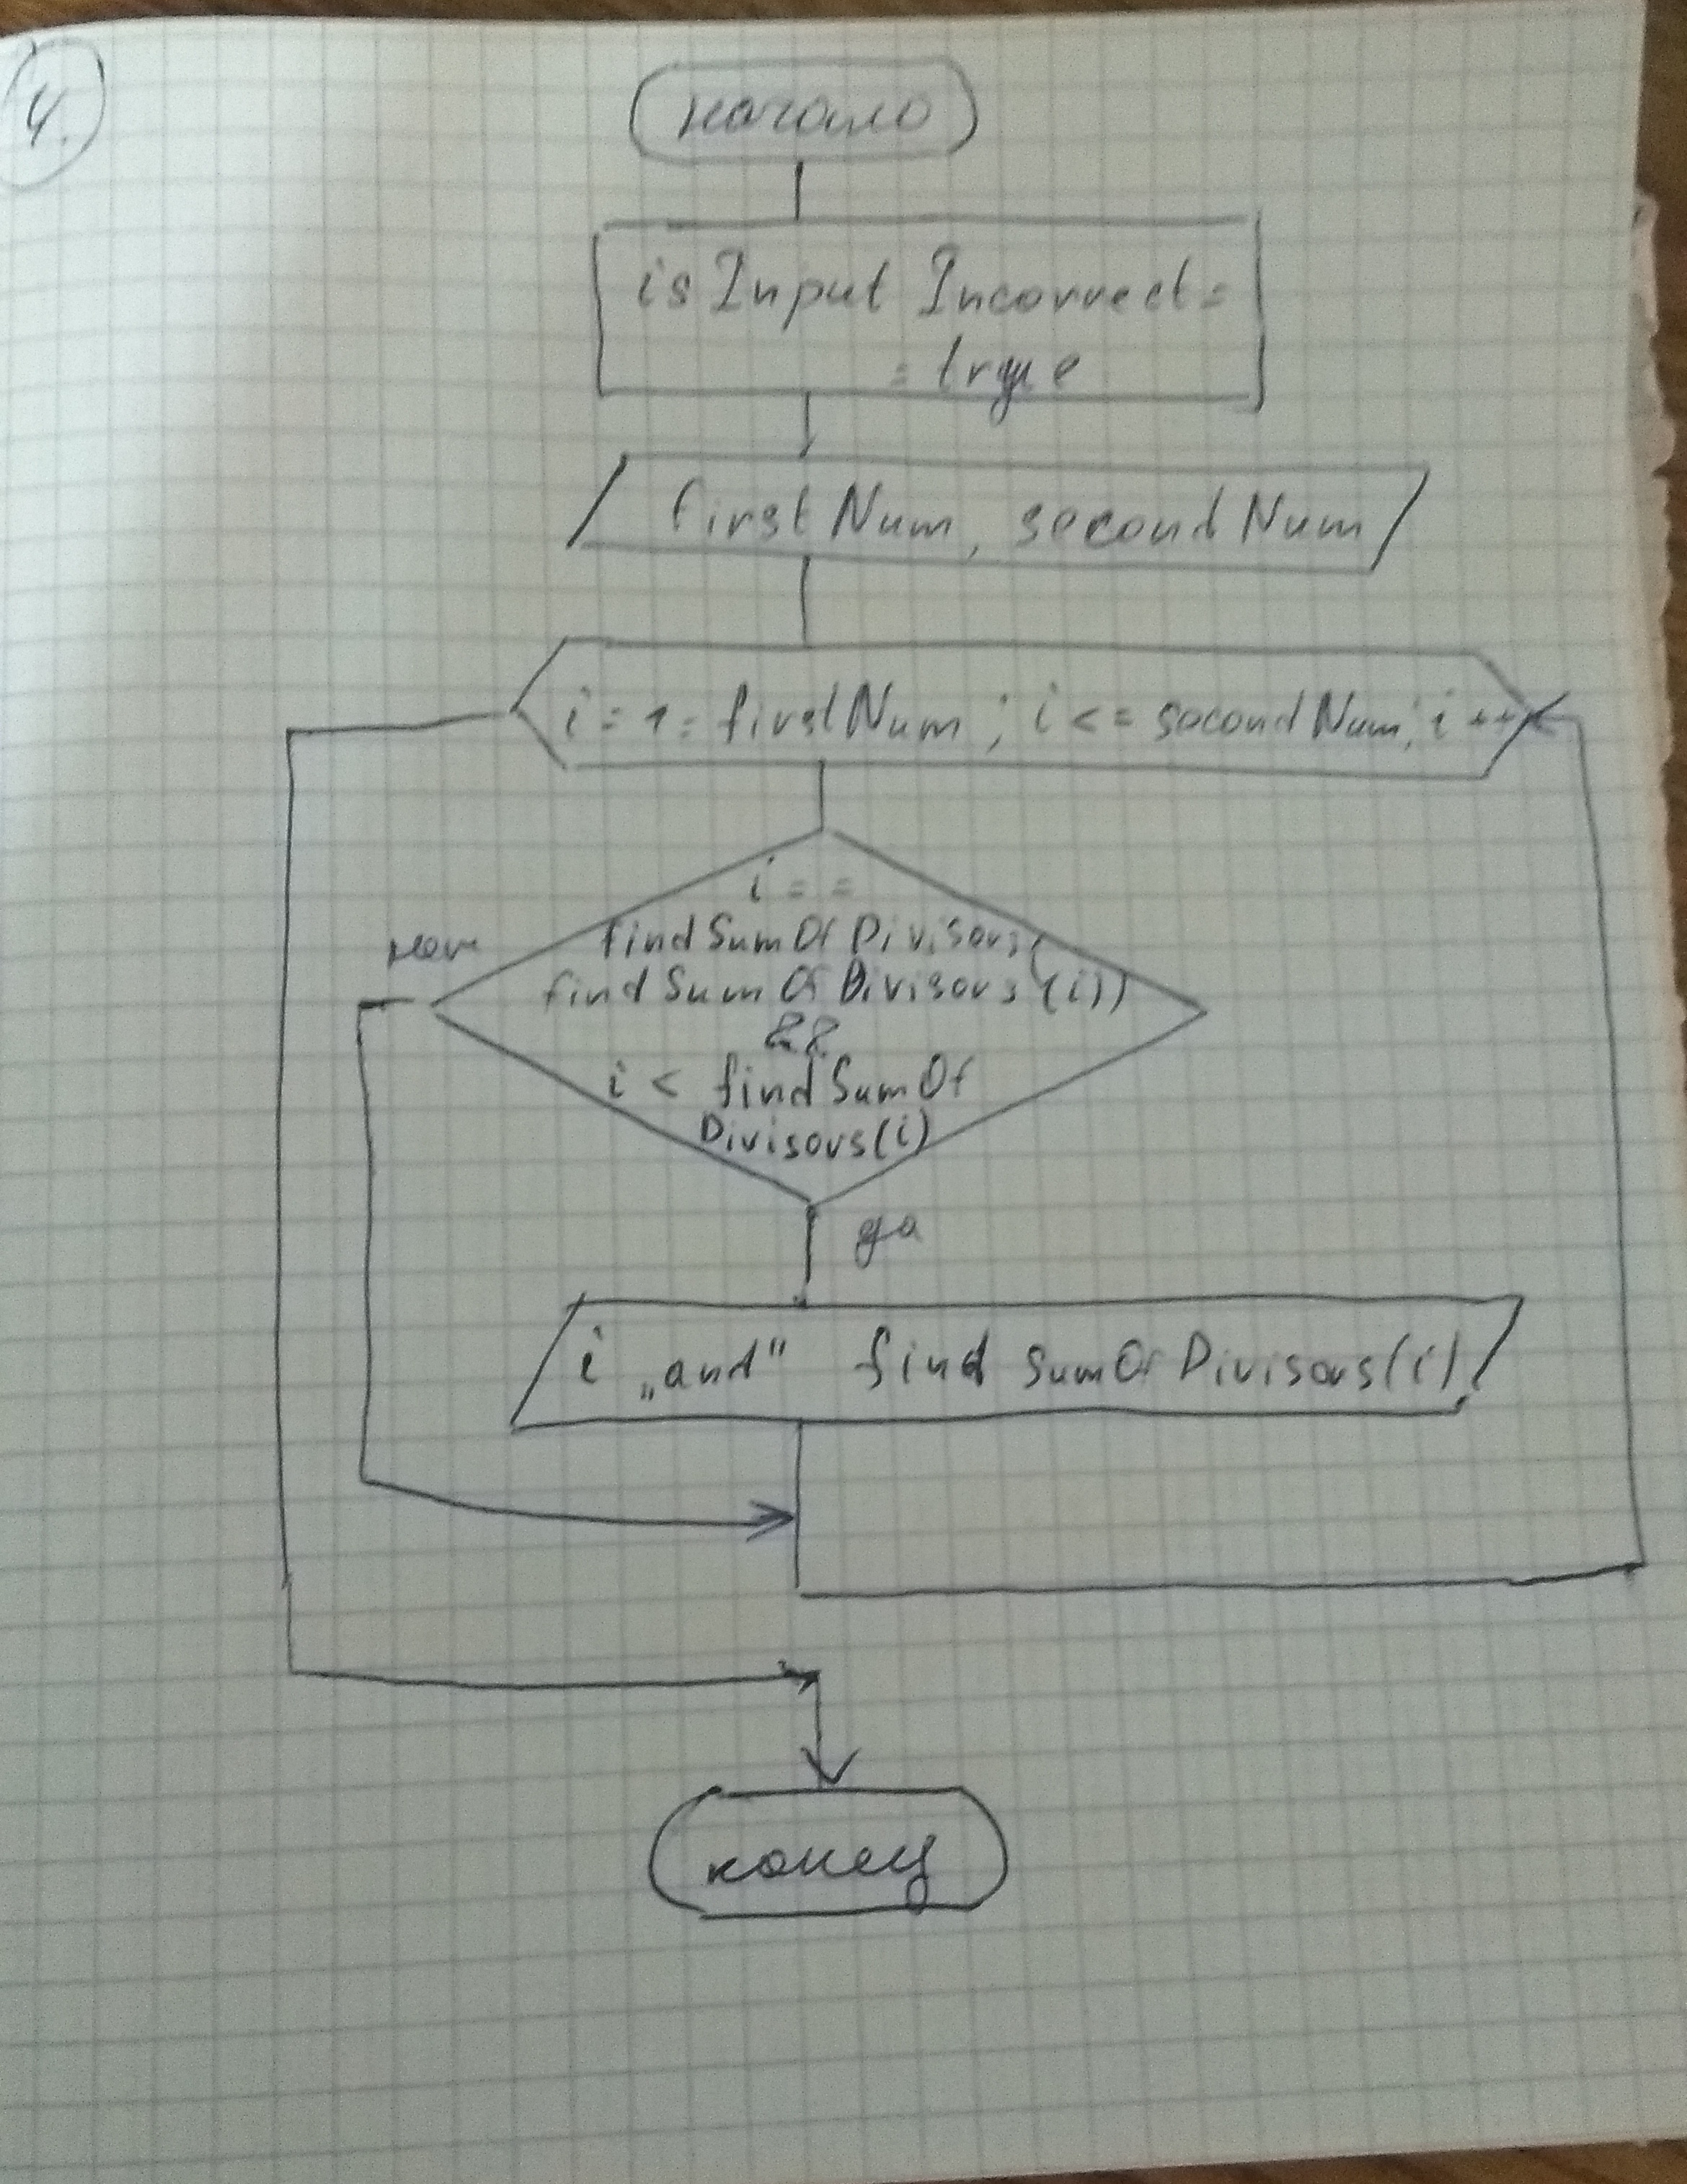 4.
начало
isInput Incorrect =
= true
firstNum, secondNum
i = 1 = firstNum; i <= secondNum; i++
i ==
findSumOfDivisors(
нет
findSumOfDivisors(i))
&&
i < findSumOf
Divisors(i)
да
i „and" findSumOfDivisors(i)
конец